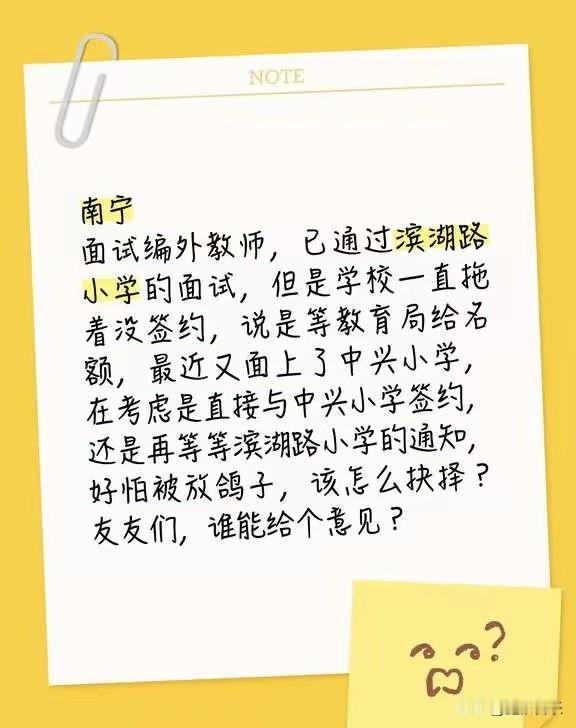 NOTE
南宁
面试编外教师，已通过滨湖路
小学的面试，但是学校一直拖
着没签约，说是等教育局给名
额，最近又面上了中兴小学，
在考虑是直接与中兴小学签约，
还是再等等滨湖路小学的通知，
好怕被放鸽子，该怎么抉择？
友友们，谁能给个意见？
?